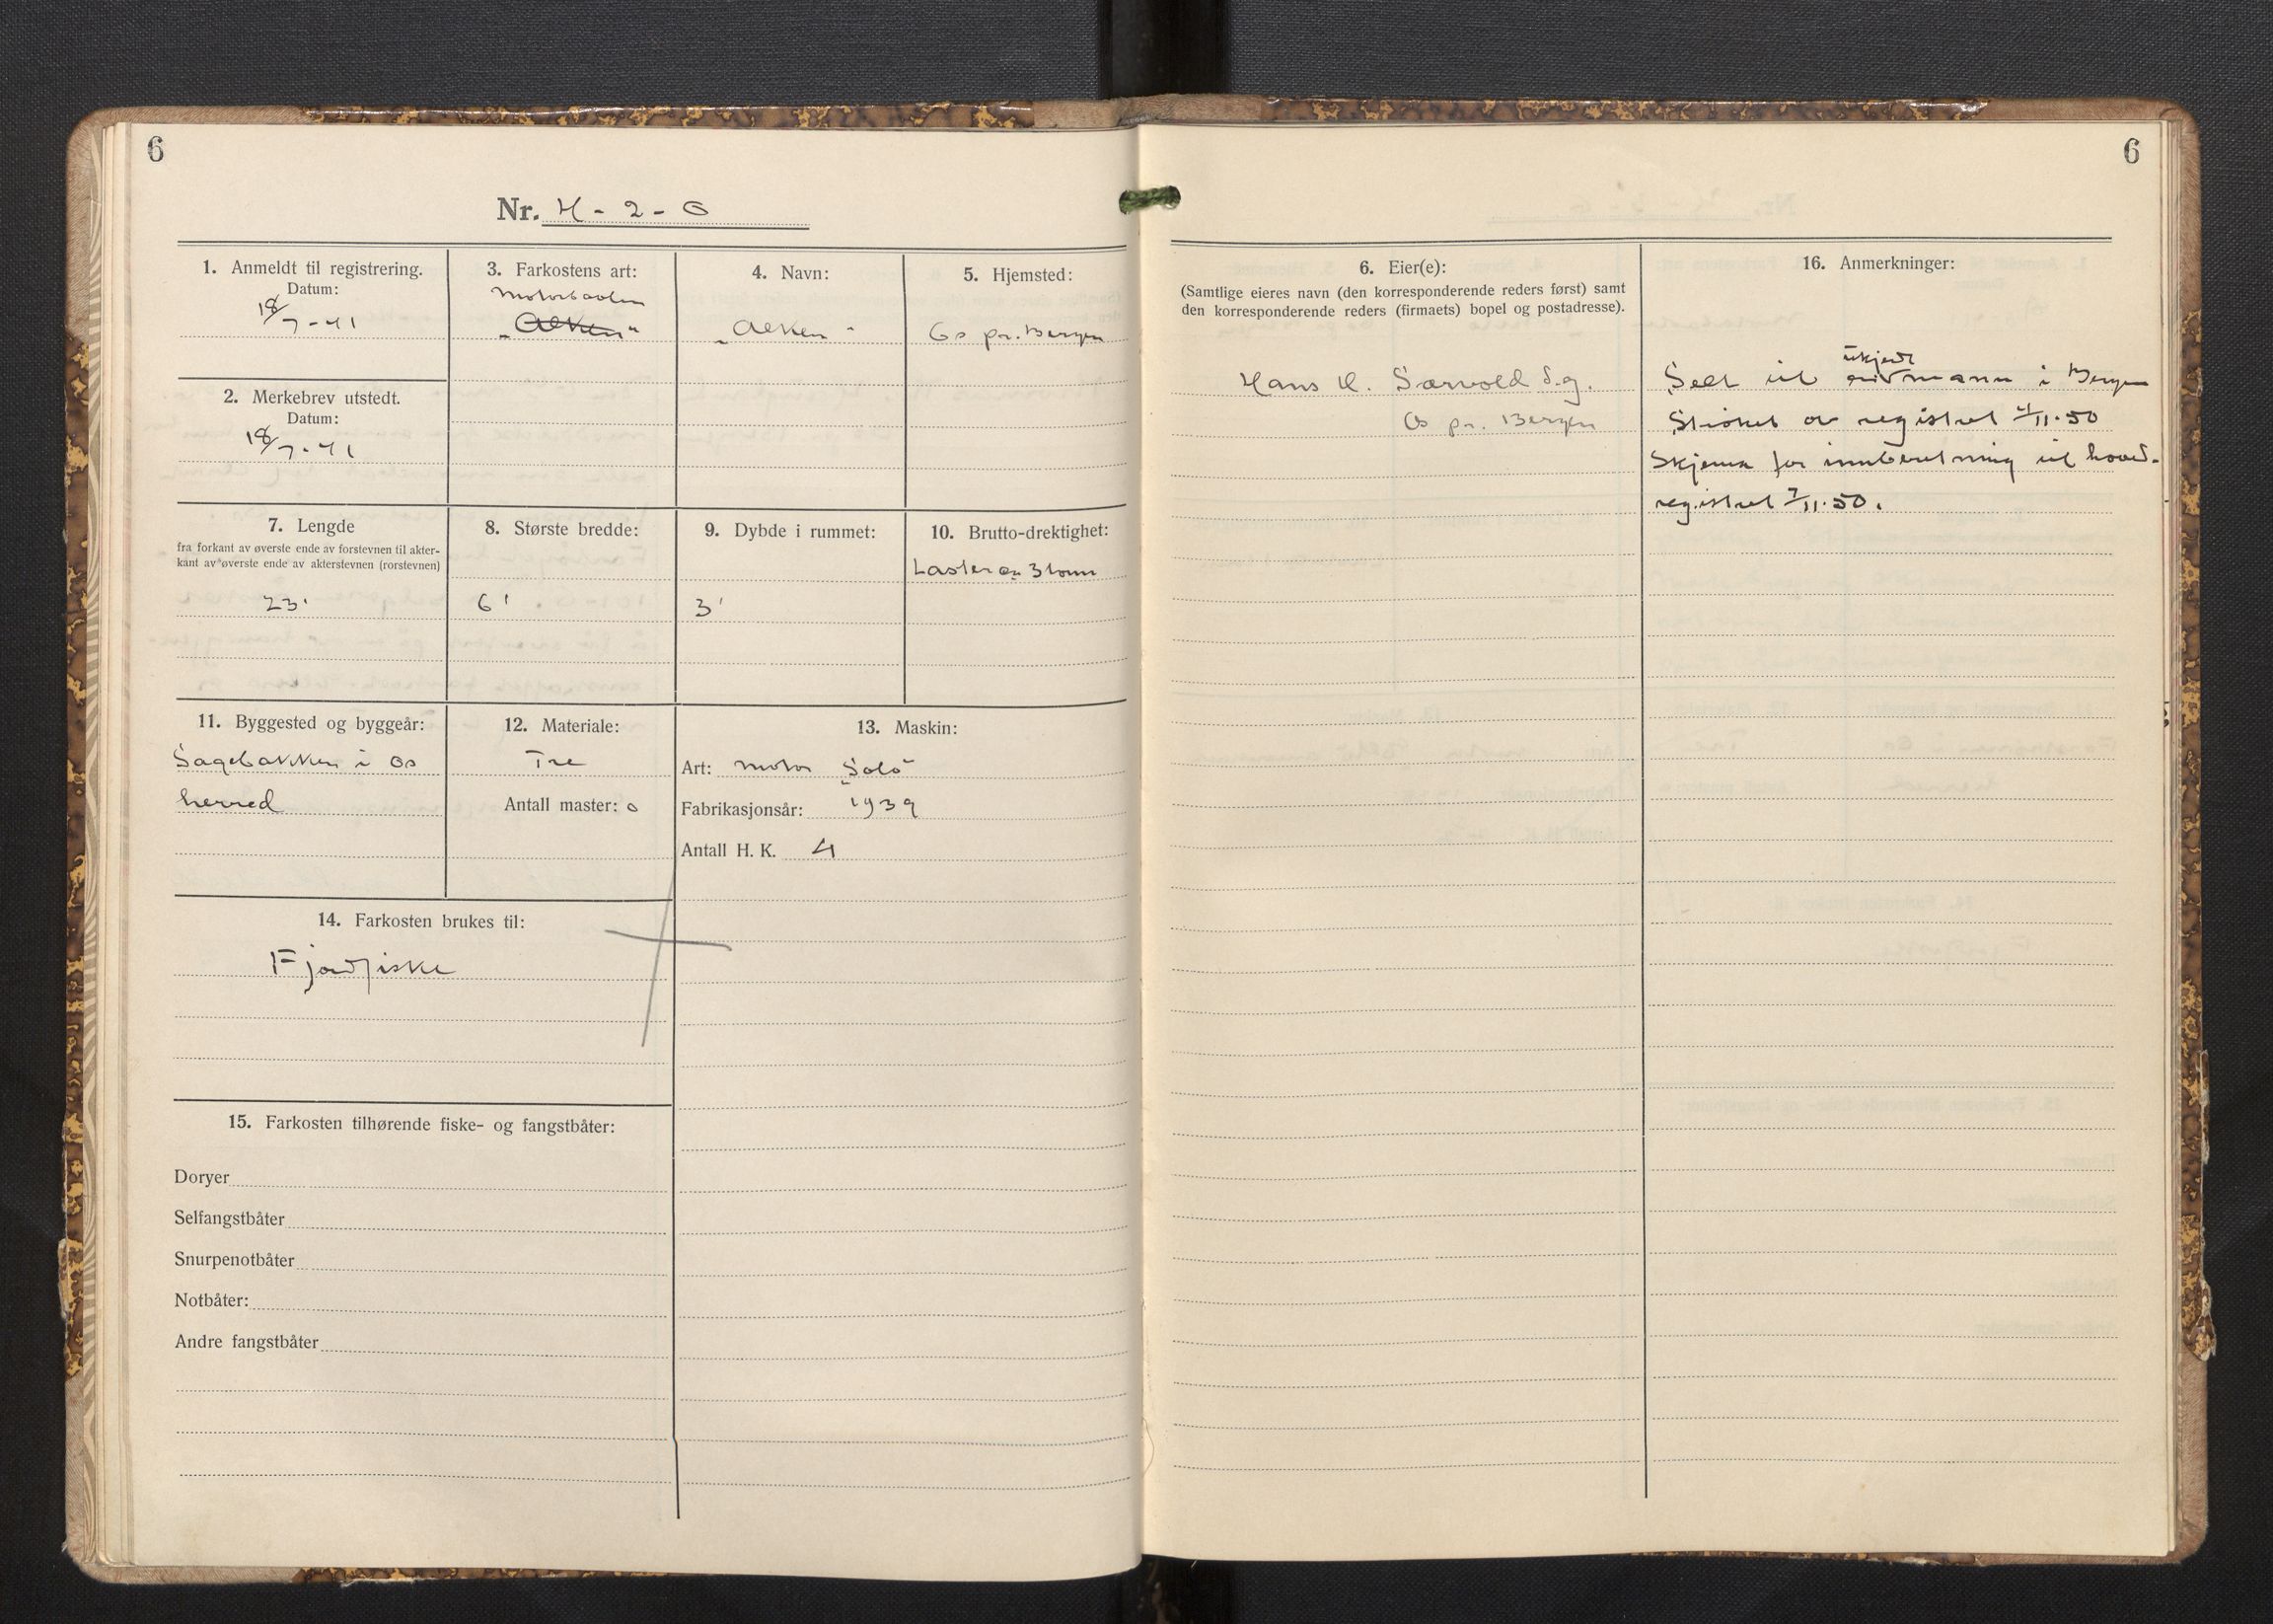 6
6
Nr. H - 2 - O
1. Anmeldt til registrering.
Datum:
18/7-41
2. Merkebrev utstedt.
Datum:
18/7-41
3. Farkostens art:
Motorbaaten
"Alken"
4. Navn:
"Alken"
5. Hjemsted:
Os pr. Bergen
7. Lengde
fra forkant av øverste ende av forstevnen til akter-
kant av øverste ende av akterstevnen (rorstevnen)
23'
8. Største bredde:
6'
9. Dybde i rummet:
3'
10. Brutto-drektighet:
Laster ca 3 tonn
11. Byggested og byggeår:
Sagebakken i Os
herred
12. Materiale:
Tre
Antall master: 0
13. Maskin:
Art: motor "Solo"
Fabrikasjonsår: 1939
Antall H. K. 4
14. Farkosten brukes til:
Fjordfiske
15. Farkosten tilhørende fiske- og fangstbåter:
Doryer
Selfangstbåter
Snurpenotbåter
Notbåter:
Andre fangstbåter
6. Eier(e):
(Samtlige eieres navn (den korresponderende reders først) samt
den korresponderende reders (firmaets) bopel og postadresse).
Hans H. Særvold S.g.
Os pr. Bergen
16. Anmerkninger:
ukjent
Selt til mann i Bergen
Strøket av registret 4/11-50
Skjema for innberetning til hoved-
registret 7/11-50.